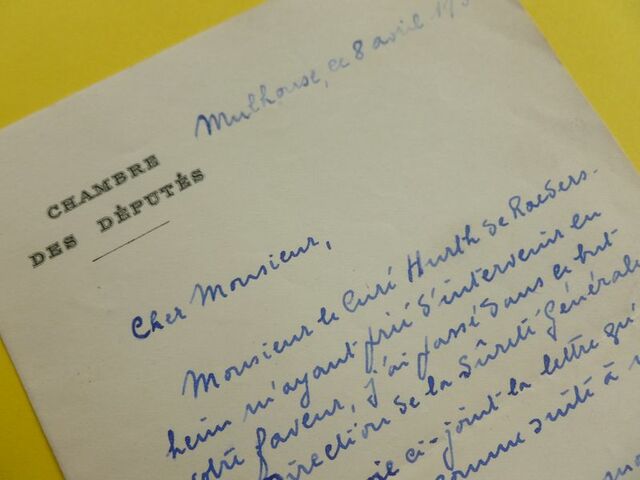 Mulhouse, ce 8 avril
CHAMBRE
DES DÉPUTÉS
Cher Monsieur,
Monsieur le Curé Hurth de Raeders-
heim m'ayant prié d'intervenir en
votre faveur, j'ai passé dans ce but
Direction de la Sûreté Générale
ci-joint la lettre qu'
comme suite à